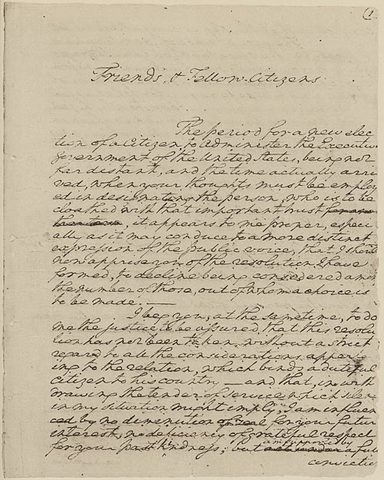 (1
Friends, & Fellow-Citizens
The period for a new elec
tion of a Citizen, to administer the Executive
government of the United States, being not
far distant, and the time actually arri
ved, when your thoughts must be employ
ed in designating the person, who is to be
cloathed with that important trust
, it appears to me proper, especi
ally as it may conduce to a more distinct
expression of the public voice, that I should
now apprise you of the resolution I have
formed, to decline being considered among
the number of those, out of whom a choice is
to be made.—
I beg you, at the same time, to do
me the justice to be assured, that this resolu
tion has not been taken, without a strict
regard to all the considerations apper
taining to the relation, which binds a dutiful
Citizen to his country — and that, in with
drawing the tender of service which silence
in my situation might imply, I am influen
ced by no diminution of zeal for your future
interest, no deficiency of grateful respect
am supported by
for your past kindness; but a full
conviction